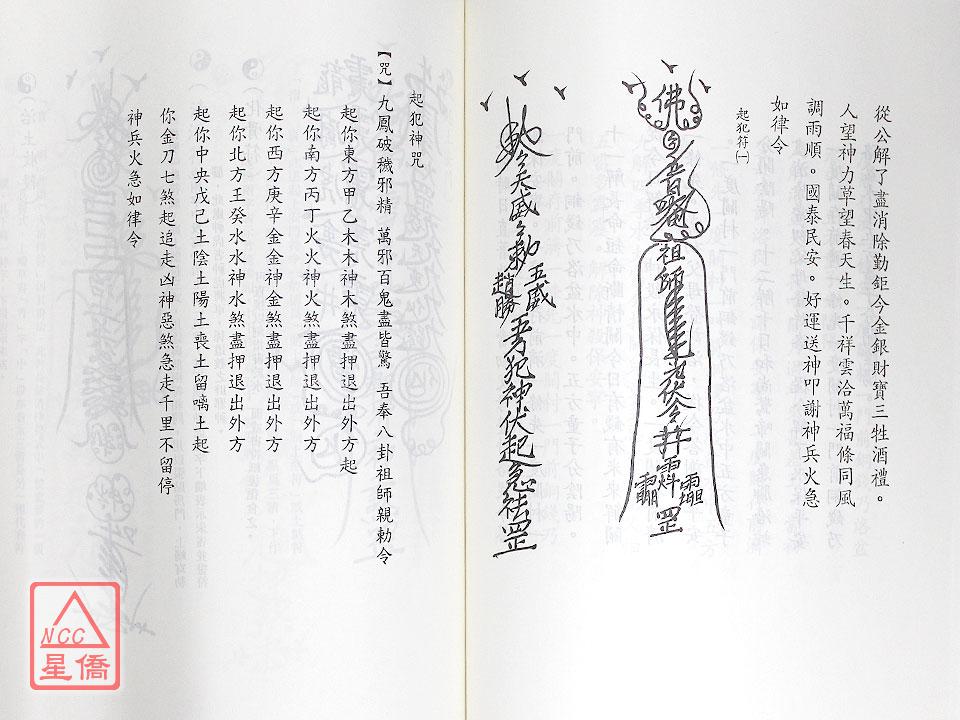 從公解了盡消除勤鉅今金銀財寶三牲酒禮。
人望神力草望春天生。千祥雲洽萬福條同風
調雨順。國泰民安。好運送神叩謝神兵火急
如律令
起犯符㈠
佛
祖師
罡
五威
趙勝
犯神伏起急
罡
起犯神咒
【咒】九鳳破穢邪精 萬邪百鬼盡皆驚 吾奉八卦祖師親勅令
起你東方甲乙木木神木煞盡押退出外方起
起你南方丙丁火火神火煞盡押退出外方
起你西方庚辛金金神金煞盡押退出外方
起你北方王癸水水神水煞盡押退出外方
起你中央戊己土陰土陽土喪土留噅土起
你金刀七煞起追走凶神惡煞急走千里不留停
神兵火急如律令
NCC
星僑